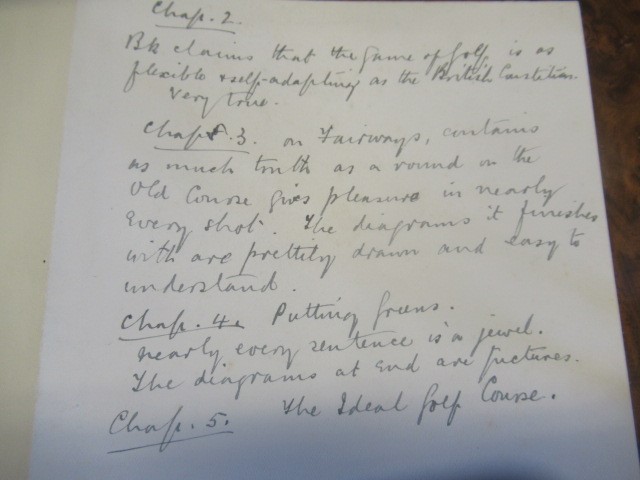 Chap. 2.
Bk claims that the game of Golf is as
flexible & self-adapting as the British Constitution.
Very true.
Chap. 3. on Fairways, contains
as much truth as a round on the
Old Course gives pleasure in nearly
every shot. The diagrams it finishes
with are prettily drawn and easy to
understand.
Chap. 4. Putting Greens.
nearly every sentence is a jewel.
The diagrams at end are pictures.
Chap. 5. The Ideal Golf Course.